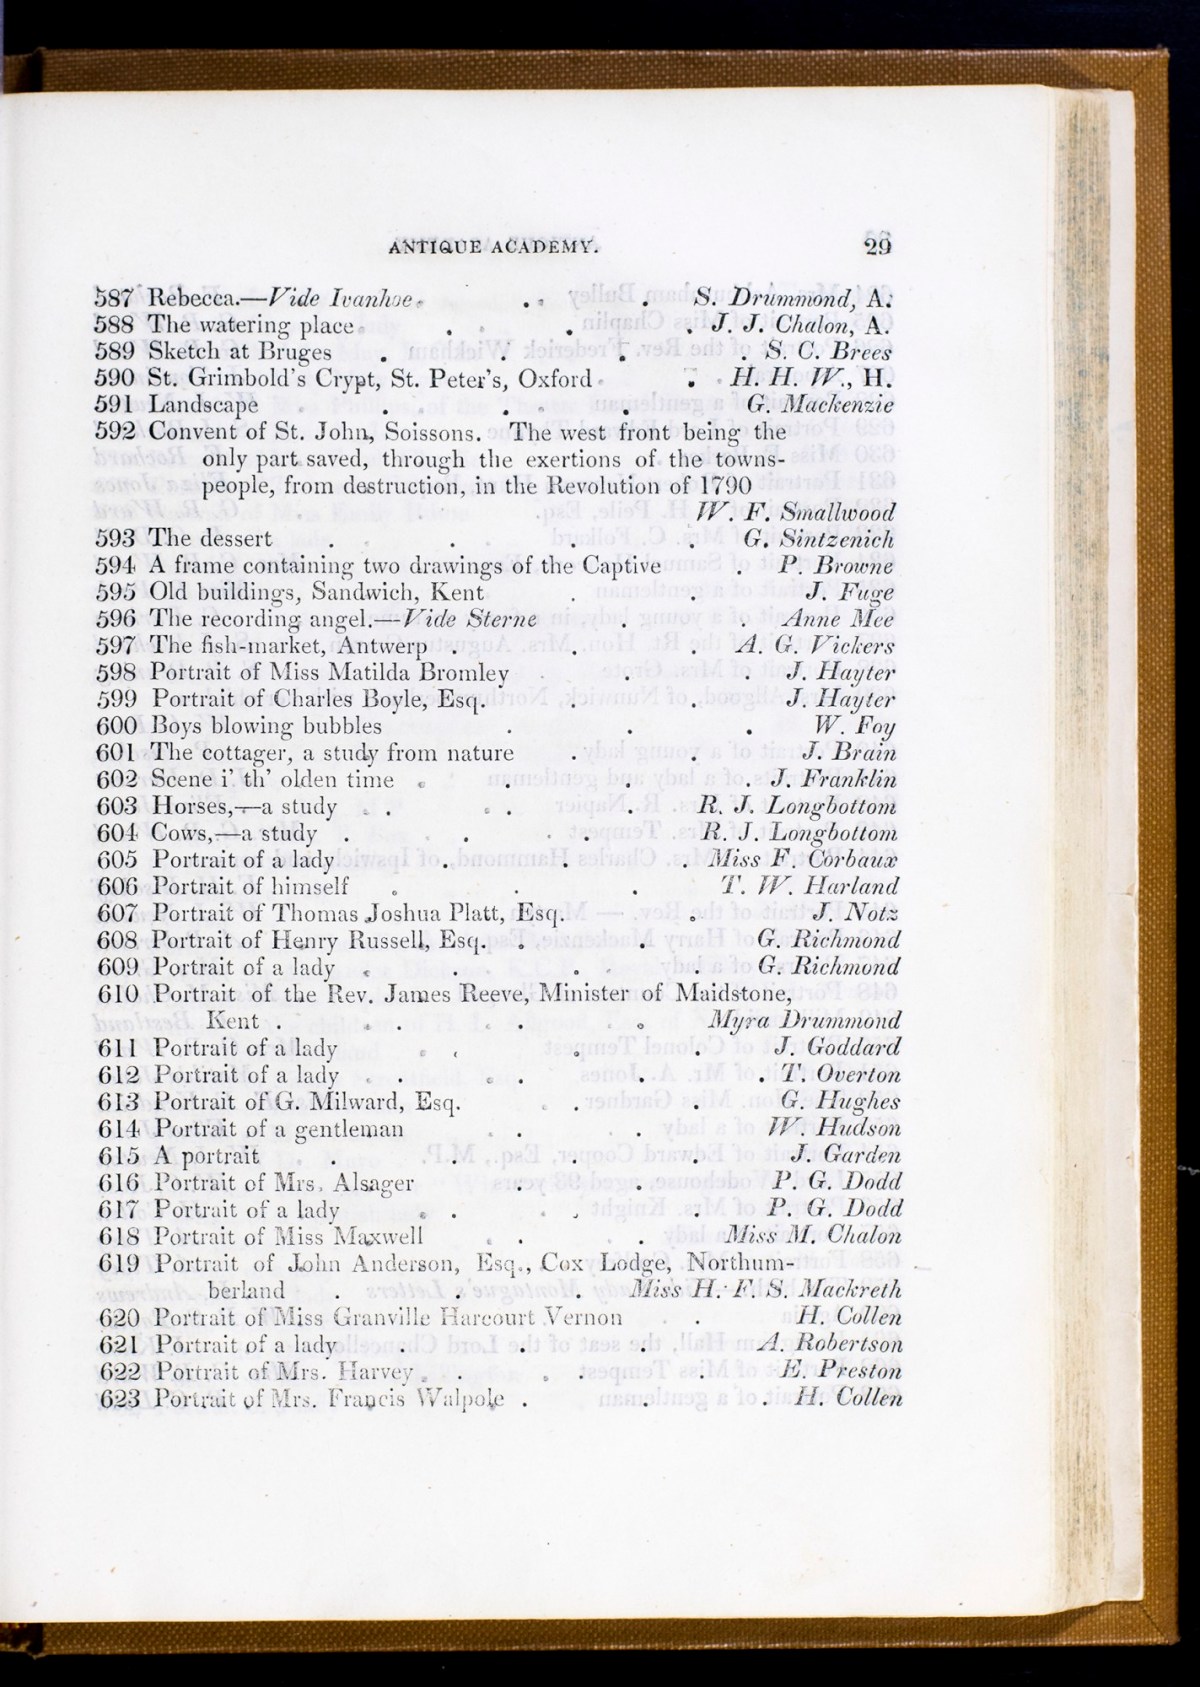 ANTIQUE ACADEMY. 29
587 Rebecca.—Vide Ivanhoe . . . S. Drummond, A.
588 The watering place . . . J. J. Chalon, A.
589 Sketch at Bruges . . . . S. C. Brees
590 St. Grimbold's Crypt, St. Peter's, Oxford . H. H. W., H.
591 Landscape . . . G. Mackenzie
592 Convent of St. John, Soissons. The west front being the
only part saved, through the exertions of the towns-
people, from destruction, in the Revolution of 1790
W. F. Smallwood
593 The dessert . . . . G. Sintzenich
594 A frame containing two drawings of the Captive . P. Browne
595 Old buildings, Sandwich, Kent . . J. Fuge
596 The recording angel.—Vide Sterne . . Anne Mee
597 The fish-market, Antwerp . . . A. G. Vickers
598 Portrait of Miss Matilda Bromley . . J. Hayter
599 Portrait of Charles Boyle, Esq. . . J. Hayter
600 Boys blowing bubbles . . . W. Foy
601 The cottager, a study from nature . . J. Brain
602 Scene i' th' olden time . . . . J. Franklin
603 Horses,—a study . . . R. J. Longbottom
604 Cows,—a study . . . R. J. Longbottom
605 Portrait of a lady . . . Miss F. Corbaux
606 Portrait of himself . . . T. W. Harland
607 Portrait of Thomas Joshua Platt, Esq. . J. Notz
608 Portrait of Henry Russell, Esq. . . G. Richmond
609 Portrait of a lady . . . . G. Richmond
610 Portrait of the Rev. James Reeve, Minister of Maidstone,
Kent . . . . Myra Drummond
611 Portrait of a lady . . . J. Goddard
612 Portrait of a lady . . . . T. Overton
613 Portrait of G. Milward, Esq. . . G. Hughes
614 Portrait of a gentleman . . W. Hudson
615 A portrait . . . . J. Garden
616 Portrait of Mrs. Alsager . . P. G. Dodd
617 Portrait of a lady . . . P. G. Dodd
618 Portrait of Miss Maxwell . . Miss M. Chalon
619 Portrait of John Anderson, Esq., Cox Lodge, Northum-
berland . . . Miss H. F. S. Mackreth
620 Portrait of Miss Granville Harcourt Vernon . H. Collen
621 Portrait of a lady . . . A. Robertson
622 Portrait of Mrs. Harvey . . . E. Preston
623 Portrait of Mrs. Francis Walpole . . . H. Collen